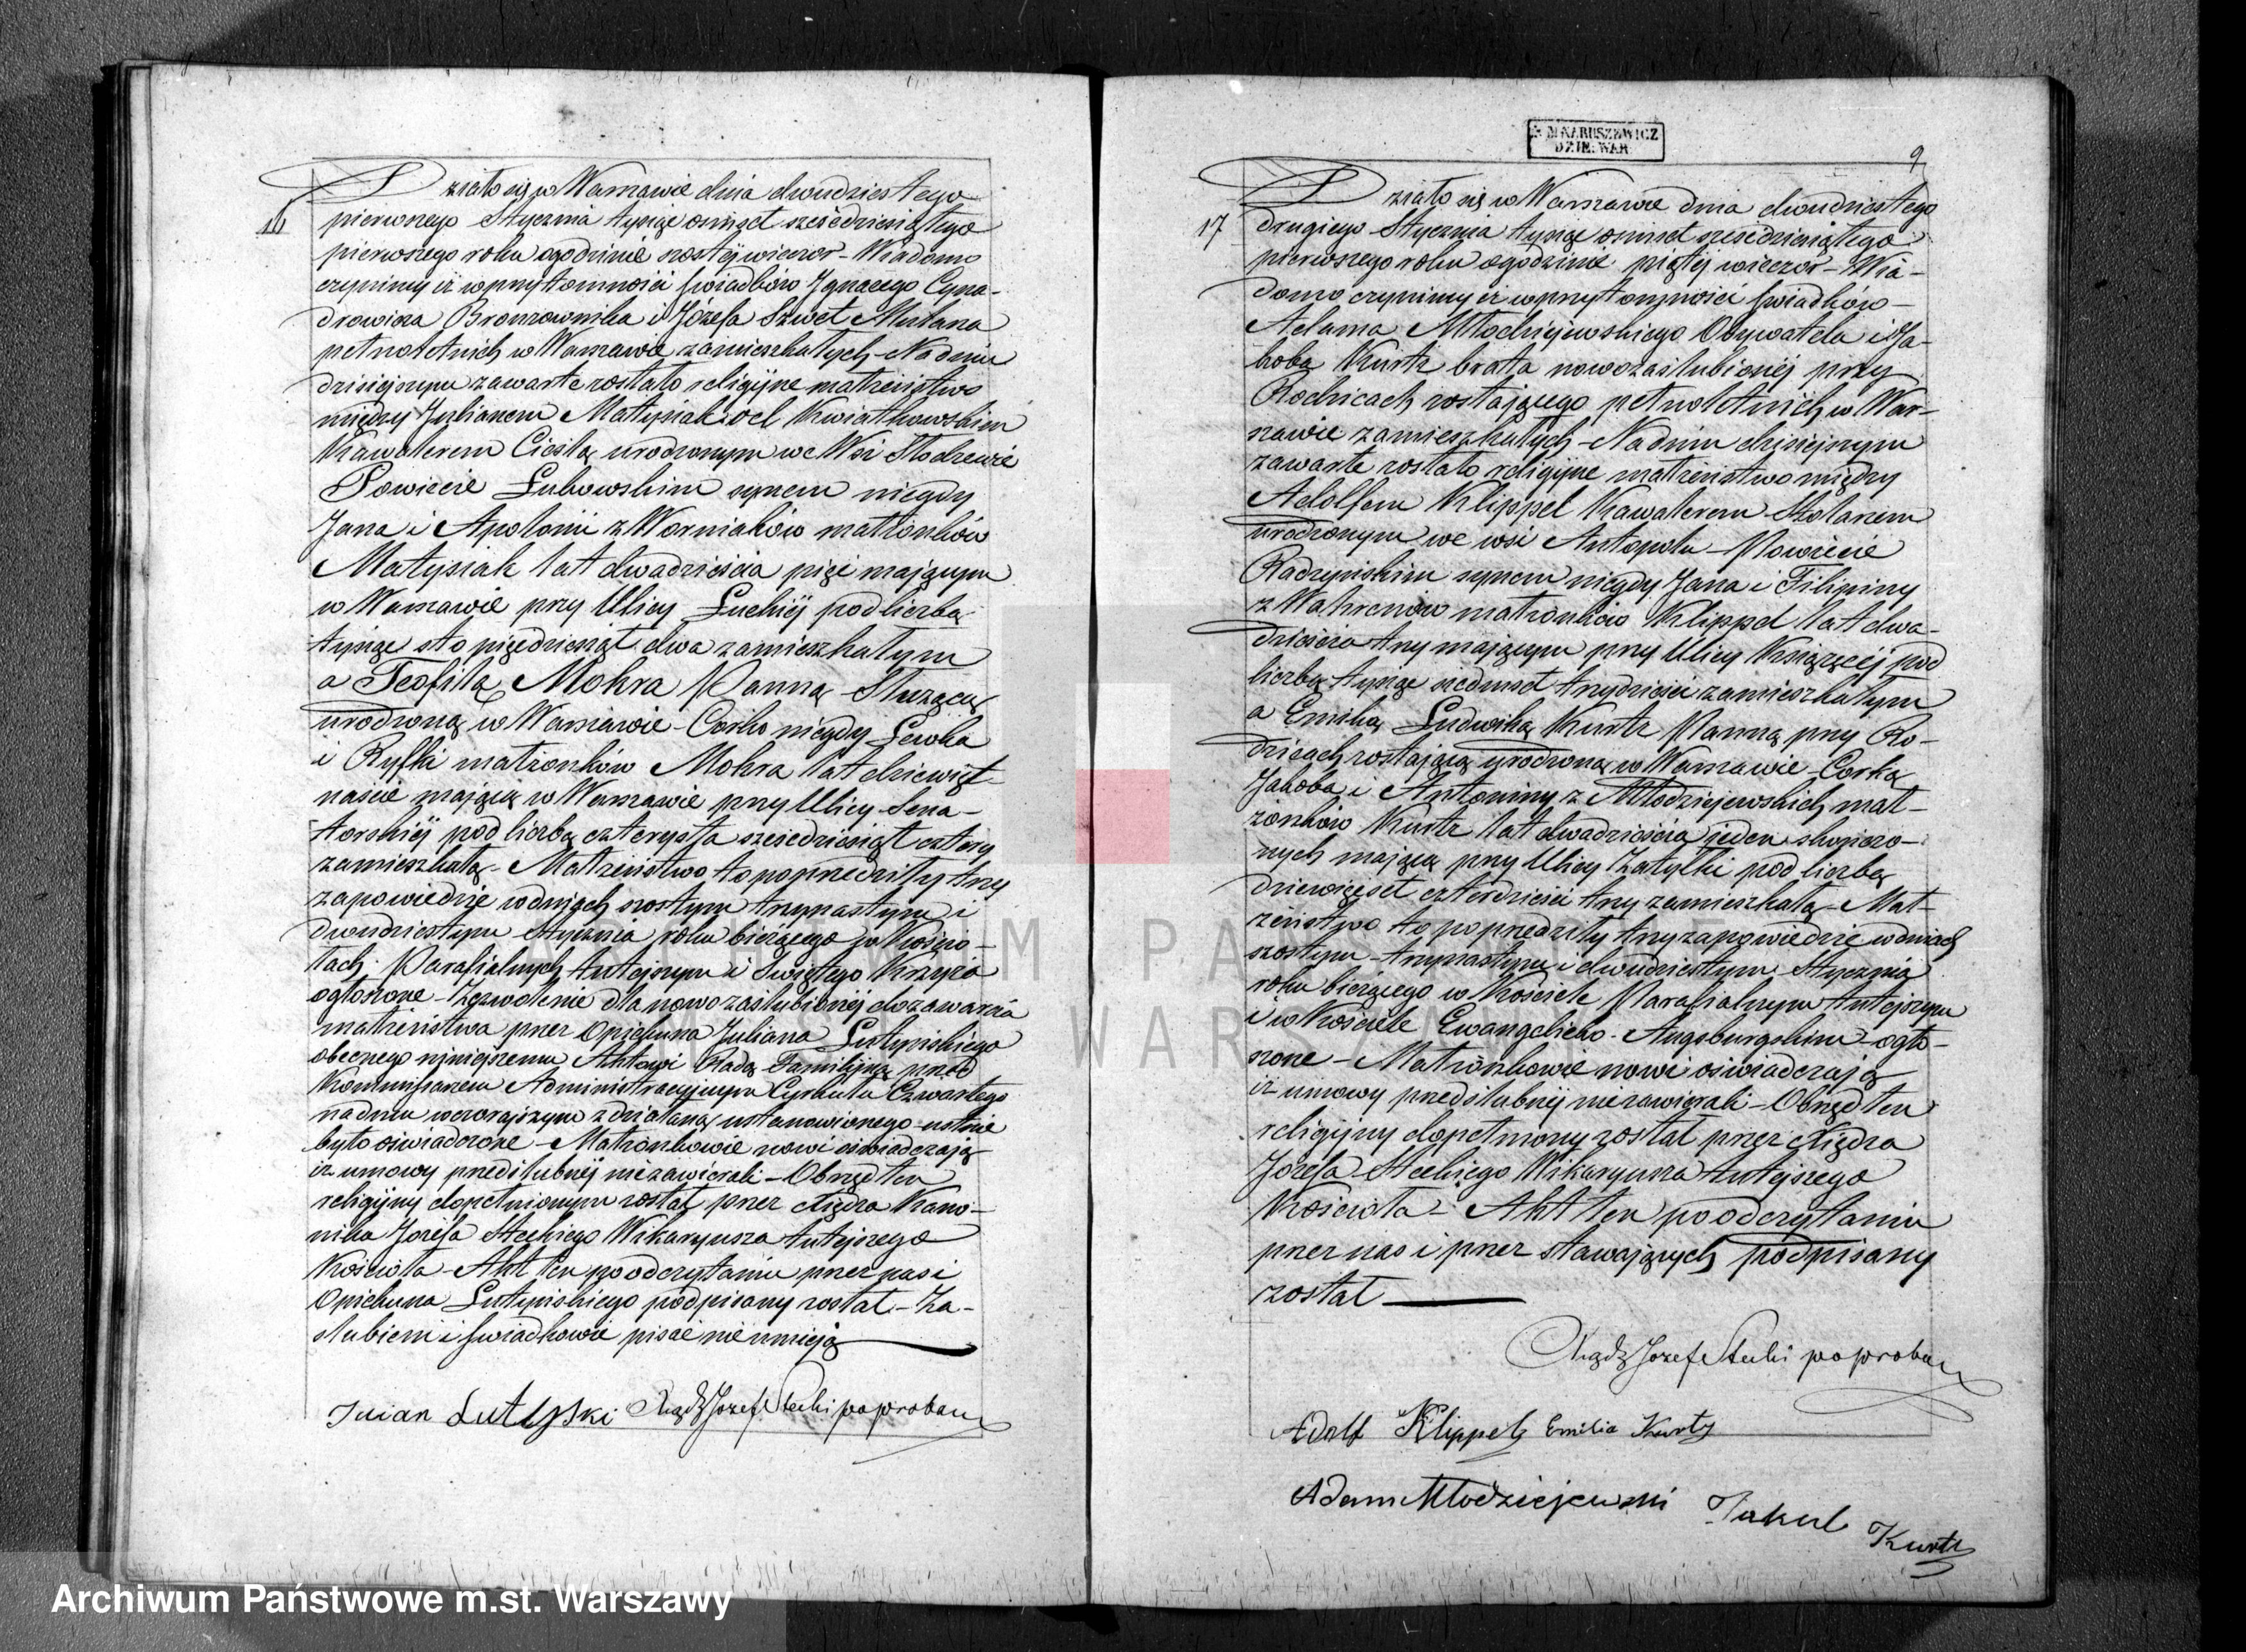 16
Działo się w Warszawie dnia dwudziestego
pierwszego Stycznia tysiąc ośmset sześćdziesiątego
pierwszego roku o godzinie szóstej wieczór – Wiadomo
czynimy iż w przytomności świadków Ignacego Cyna-
drowicza Bronzownika i Józefa Szwet Mularza
pełnoletnich w Warszawie zamieszkałych – Na dniu
dzisiejszym zawarte zostało religijne małżeństwo
między Julianem Matysiak vel Kwiatkowskim
Kawalerem Cieślą urodzonym we Wsi Stodzewie
Powiecie Łukowskim synem niegdy
Jana i Apolonii z Worniaków małżonków
Matysiak lat dwadzieścia pięć mającym
w Warszawie przy Ulicy Suchéj pod liczbą
tysiąc sto pięćdziesiąt dwa zamieszkałym
a Teofilą Mohra Panną Służącą
urodzoną w Warszawie – Córką niegdy Lewka
i Ryfki małżonków Mohra lat dziewięt-
naście mającą w Warszawie przy Ulicy Sena-
torskiéj pod liczbą czterysta sześćdziesiąt cztery
zamieszkałą – Małżeństwo to poprzedziły trzy
zapowiedzie w dniach szóstym trzynastym i
dwudziestym Stycznia roku bieżącego w Kościo-
łach Parafialnych tutejszym i Świętego Krzyża
ogłoszone – Zezwolenie dla nowozaślubionéj do zawarcia
małżeństwa przez Opiekuna Juliana Lutyńskiego
obecnego niniejszemu Aktowi Radą Familijną przed
Kommissarzem Administracyjnym Cyrkułu Czwartego
na dniu wczorajszym zdziałaną ustanowionego ustnie
było oświadczone – Małżonkowie nowi oświadczają
iż umowy przedślubnéj nie zawierali – Obrzęd ten
religijny dopełnionym został przez Xiędza Kano-
nika Józefa Steckiego Wikaryusza tutejszego
Kościoła – Akt ten po odczytaniu przez nas i
Opiekuna Lutyńskiego podpisany został – Za-
ślubieni i świadkowie pisać nie umieją
Julian Lutyski Xiądz Jozef Stecki poproban
MNARUSZEWICZ
DZIE. WAR
9
17
Działo się w Warszawie dnia dwudziestego
drugiego Stycznia tysiąc ośmset sześćdziesiątego
pierwszego roku o godzinie piątéj wieczór – Wia-
domo czynimy iż w przytomności świadków
Adama Młodziejewskiego Obywatela i Ja-
koba Kurtz brata nowozaślubionéj przy
Rodzicach zostającego pełnoletnich w War-
szawie zamieszkałych – Na dniu dzisiejszym
zawarte zostało religijne małżeństwo między
Adolfem Klippel Kawalerem Stolarzem
urodzonym we wsi Antopolu – Powiecie
Radzyńskim synem niegdy Jana i Filipiny
z Wahrenów małżonków Klippel lat dwa-
dzieścia trzy mającym przy Ulicy Książęcéj pod
liczbą tysiąc siedmset trzydzieści zamieszkałym
a Emilią Ludwiką Kurtz Panną przy Ro-
dzicach zostającą urodzoną w Warszawie – Córką
Jakoba i Antoniny z Młodziejewskich mał-
żonków Kurtz lat dwadzieścia jeden skończo-
nych mającą przy Ulicy Zatylki pod liczbą
dziewięćset czterdzieści trzy zamieszkałą – Mał-
żeństwo to poprzedziły trzy zapowiedzie w dniach
szóstym – trzynastym i dwudziestym Stycznia
roku bieżącego w Kościele Parafialnym tutejszym
i w Kościele Ewangelicko-Augsburgskim ogło-
szone – Małżonkowie nowi oświadczają
iż umowy przedślubnéj nie zawierali – Obrzęd ten
religijny dopełniony został przez Xiędza
Józefa Steckiego Wikaryusza tutejszego
Kościoła – Akt ten po odczytaniu
przez nas i przez stawających podpisany
został
Xiądz Jozef Stecki poproban
Adolf Klippel Emilia Kurtz
Adam Młodziejewski Jakub
Kurtz
M PA
WARS
Archiwum Państwowe m.st. Warszawy